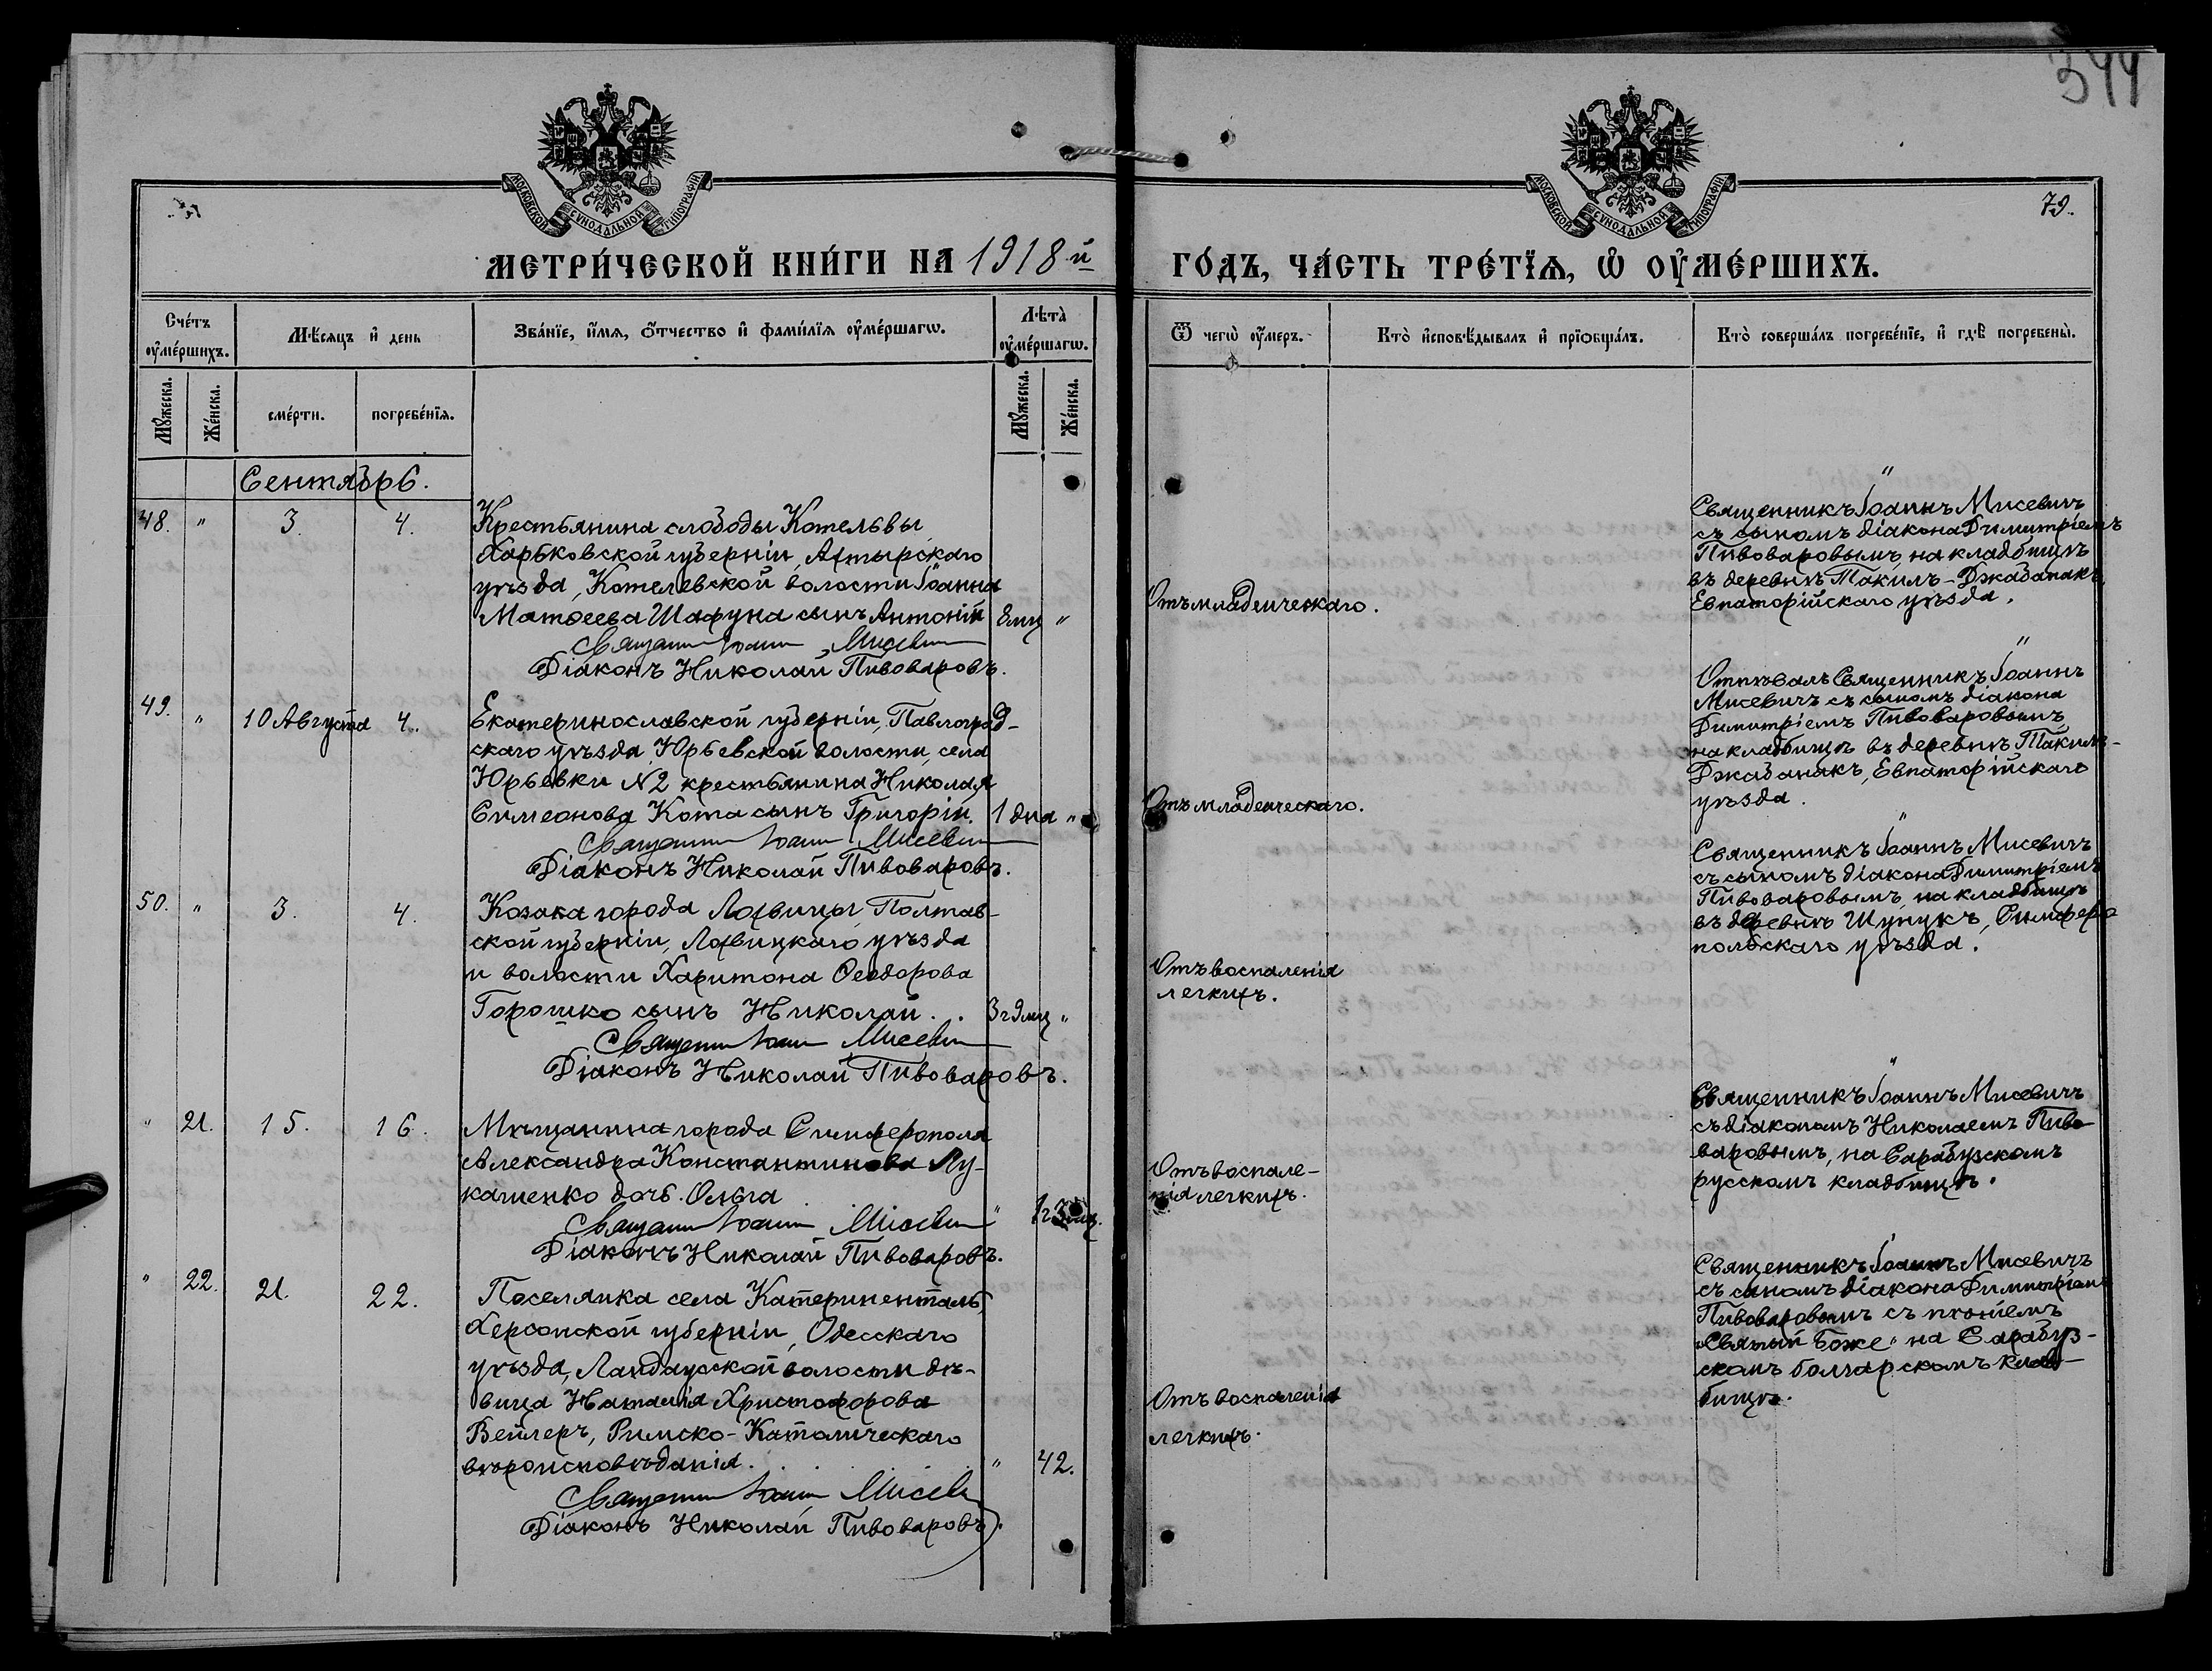 344
79.
МОСКОВСКОЙ СУНОДАЛЬНОЙ ТИПОГРАФІИ
МОСКОВСКОЙ СУНОДАЛЬНОЙ ТИПОГРАФІИ
МЕТРИ́ЧЕСКОЙ КНИ́ГИ НА 1918-й
ГО́ДЪ, ЧА́СТЬ ТРЕ́ТЇѦ, Ѡ ОУМЕ́РШИХЪ.
Сче́тъ оуме́ршихъ.
Мѣ́сяцъ и день
Зва́нїе, и́мя, о́тчество и фами́лїя оуме́ршагѡ.
Лѣта̀ оуме́ршагѡ.
Ѿ чегѡ̀ оу́меръ.
Кто̀ исповѣ́дывалъ и прїѻбща́лъ.
Кто̀ соверша́лъ погребе́нїе, и гдѣ̀ погребены̀.
Му́жеска.
Же́нска.
сме́рти.
погребе́нїя.
Му́жеска.
Же́нска.
Сентябрь.
48. " 3. 4.
Крестьянина слободы Котельвы
Харьковской губерніи, Ахтырскаго
уѣзда, Котелевской волости Іоанна
Матѳеева Шафуна сынъ Антоній 8 мц "
Священникъ Іоаннъ Мисевичъ
Діаконъ Николай Пивоваровъ.
Отъ младенческаго.
Священникъ Іоаннъ Мисевичъ
съ сыномъ діакона Димитріемъ
Пивоваровымъ, на кладбищѣ
въ деревнѣ Такилъ-Джабанакъ,
Евпаторійскаго уѣзда.
49. " 10 Августа 4.
Екатеринославской губерніи, Павлоград-
скаго уѣзда, Юрьевской волости, села
Юрьевки №2 крестьянина Николая
Симеонова Кота сынъ Григорій. 1 дня "
Священникъ Іоаннъ Мисевичъ
Діаконъ Николай Пивоваровъ.
Отъ младенческаго.
Отпѣвалъ Священникъ Іоаннъ
Мисевичъ съ сыномъ діакона
Димитріемъ Пивоваровымъ,
на кладбищѣ въ деревнѣ Такилъ-
Джабанакъ, Евпаторійскаго
уѣзда.
50. " 3. 4.
Козака города Лохвицы, Полтав-
ской губерніи, Лохвицкаго уѣзда
и волости Харитона Ѳеодорова
Горошко сынъ Николай . . 3 г 9 мц "
Священникъ Іоаннъ Мисевичъ
Діаконъ Николай Пивоваровъ.
Отъ воспаленія
легкихъ.
Священникъ Іоаннъ Мисевичъ
съ сыномъ діакона Димитріемъ
Пивоваровымъ, на кладбищѣ
въ деревнѣ Шунукъ, Симферо
польскаго уѣзда.
" 21. 15. 16.
Мѣщанина города Симферополя
Александра Константинова Лу-
кашенко дочь Ольга
" 1 г 3 мц.
Священникъ Іоаннъ Мисевичъ
Діаконъ Николай Пивоваровъ.
Отъ воспале-
нія легкихъ.
Священникъ Іоаннъ Мисевичъ
съ діакономъ Николаемъ Пиво-
варовымъ, на Сарабузскомъ
русскомъ кладбищѣ.
" 22. 21. 22.
Поселянка села Катериненталь,
Херсонской губерніи, Одесскаго
уѣзда, Ландауской волости дѣ-
вица Наталія Христофорова
Вейлеръ, Римско-Католическаго
вѣроисповѣданія. " 42.
Священникъ Іоаннъ Мисевичъ
Діаконъ Николай Пивоваровъ.
Отъ воспаленія
легкихъ.
Священникъ Іоаннъ Мисевичъ
съ сыномъ діакона Димитріемъ
Пивоваровымъ съ пѣніемъ
"Святый Боже" на Сарабуз-
скомъ болгарскомъ клад-
бищѣ.